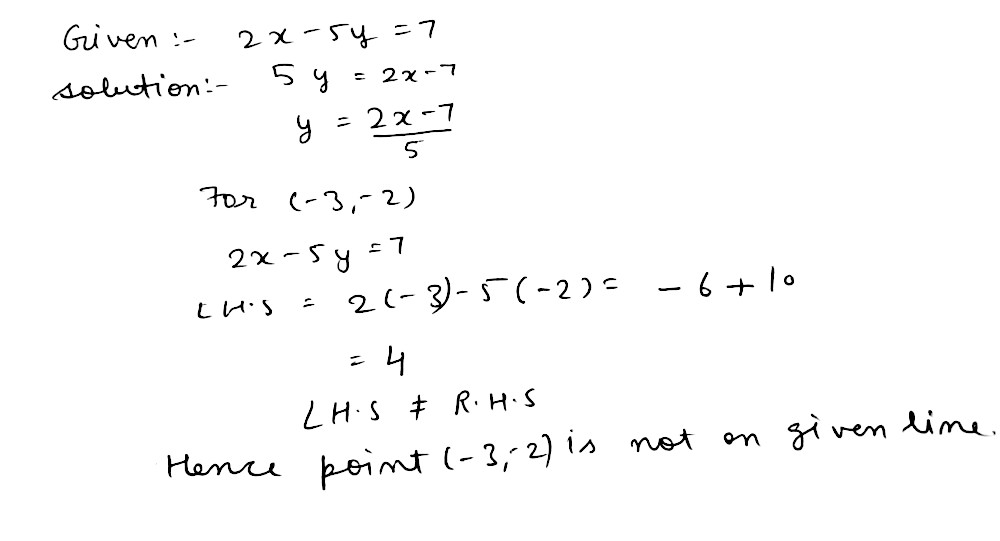 Given :- 2x - 5y = 7
solution:- 5y = 2x-7
y = 2x-7
5
For (-3,-2)
2x - 5y = 7
LH.S = 2(-3)-5(-2) = -6 + 10
= 4
LH.S ≠ R.H.S
Hence point (-3,-2) is not on given line.